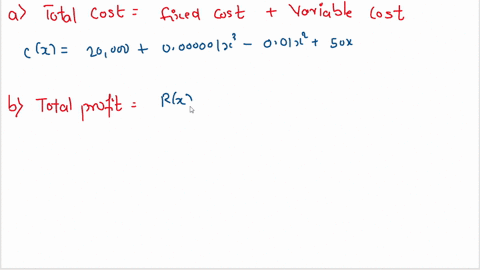 a) Total Cost = fixed cost + Variable cost
C(x) = 20,000 + 0.000001x³ - 0.01x² + 50x
b) Total profit = R(x)